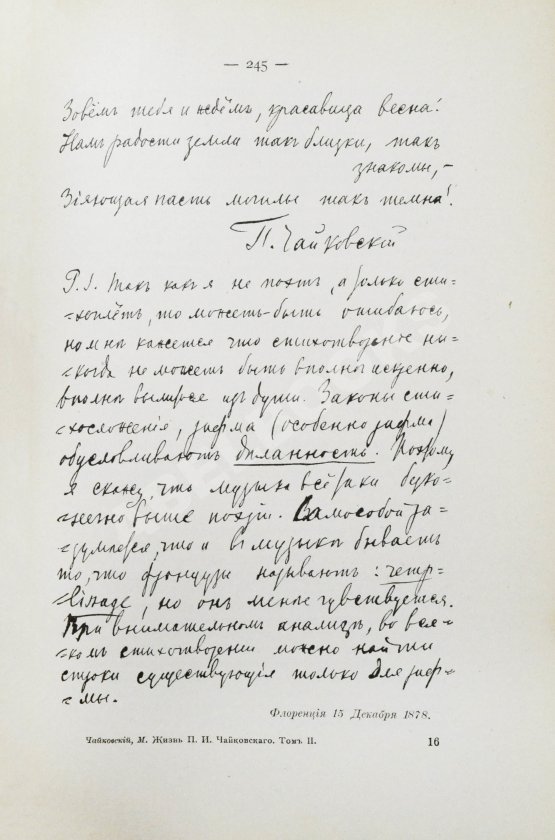 — 245 —
Зовёмъ тебя и ждёмъ, красавица весна!
Намъ радости земли такъ близки, такъ
знакомы, –
Зіяющая пасть могилы такъ темна!
П. Чайковскій
P. S. Такъ какъ я не поэтъ, а только сти-
-хоплётъ, то можетъ-быть ошибаюсь,
но мнѣ кажется что стихотвореніе ни-
-когда не можетъ быть вполнѣ искренно,
вполнѣ вылиться изъ души. Законы сти-
-хосложенія, рифма (особенно рифма)
обусловливаютъ дѣланность. Поэтому
я скажу, что музыка всё таки безко-
-нечно выше поэзіи. Само собой ра-
-зумѣется, что и въ музыкѣ бываетъ
то, что французы называютъ: remp-
-lissage, но онъ менѣе чувствуется.
При внимательномъ анализѣ, во вся-
-комъ стихотвореніи можно найти
строки существующія только для риф-
-мы.
Флоренція 15 Декабря 1878.
Чайковскій, М. Жизнь П. И. Чайковскаго. Томъ II.
16